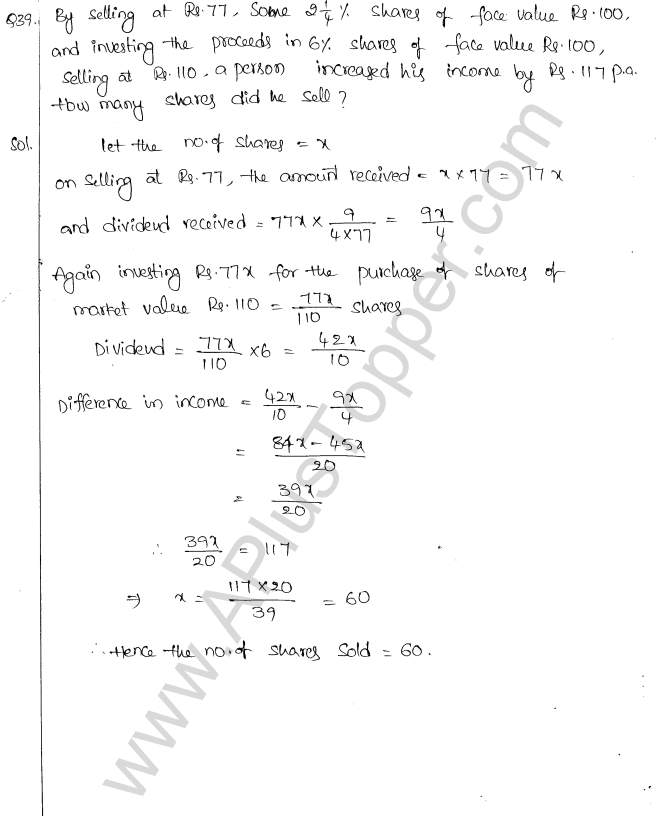 Q39. By selling at Rs.77, Some 2 1/4 % shares of face value Rs.100,
and investing the proceeds in 6% shares of face value Rs.100,
Selling at Rs.110, a person increased his income by Rs.117 p.a.
How many shares did he sell?
Sol. let the no.of shares = x
on selling at Rs.77, the amount received = x × 77 = 77x
and dividend received = 77x × 9/(4×77) = 9x/4
Again investing Rs.77x for the purchase of shares of
market value Rs.110 = 77x/110 shares
Dividend = 77x/110 × 6 = 42x/10
Difference in income = 42x/10 - 9x/4
= (84x - 45x)/20
= 39x/20
∴ 39x/20 = 117
⇒ x = (117×20)/39 = 60
∴ Hence the no.of shares Sold = 60.
www.APlusTopper.com